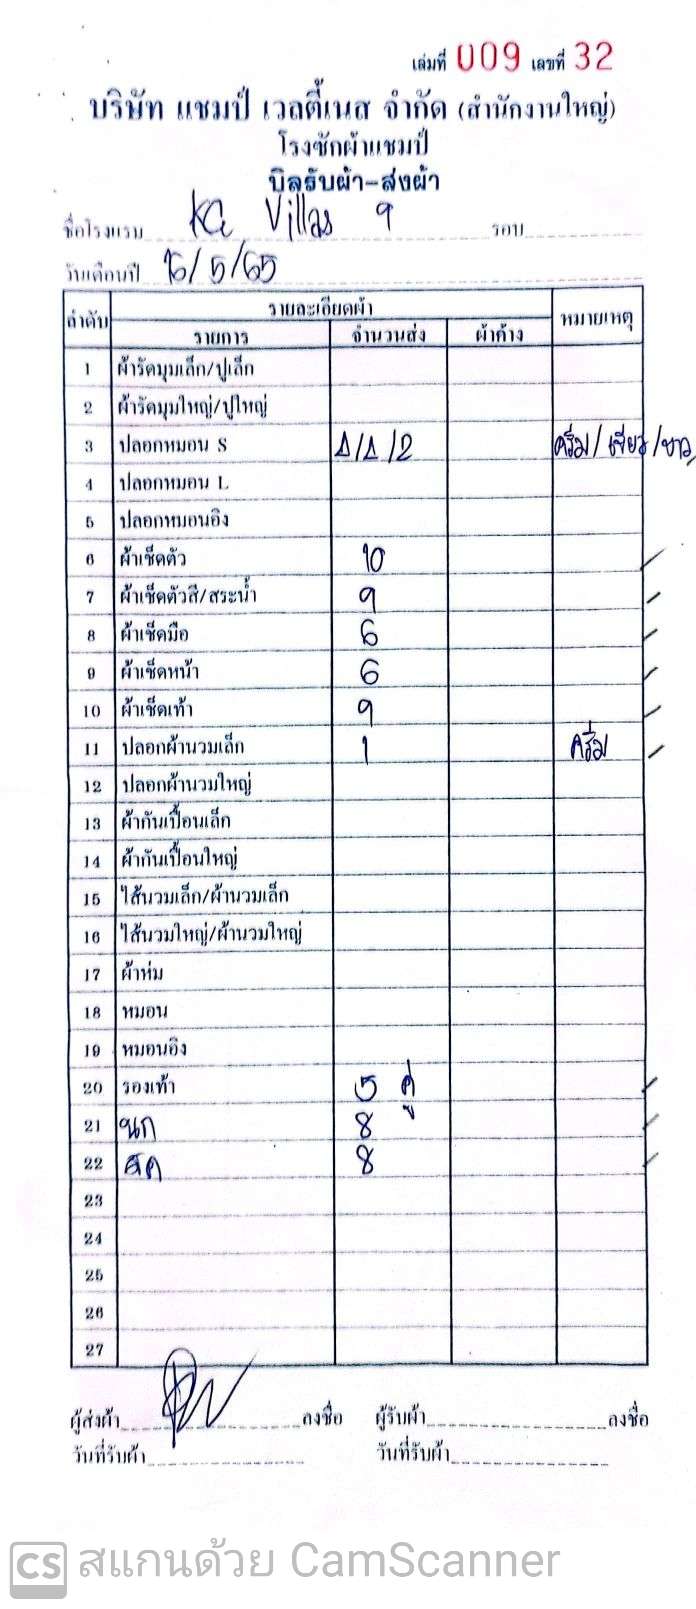 เล่มที่ 009 เลขที่ 32
บริษัท แชมป์ เวลตี้เนส จำกัด (สำนักงานใหญ่)
โรงซักผ้าแชมป์
บิลรับผ้า-ส่งผ้า
ชื่อโรงแรม Villas 9 รอบ
วันเดือนปี 16/5/65
ลำดับ รายละเอียดผ้า หมายเหตุ
รายการ จำนวนส่ง ผ้าค้าง
1 ผ้ารัดมุมเล็ก/ปูเล็ก
2 ผ้ารัดมุมใหญ่/ปูใหญ่
3 ปลอกหมอน S 1/1/2 ครีม/เขียว/ขาว
4 ปลอกหมอน L
5 ปลอกหมอนอิง
6 ผ้าเช็ดตัว 10
7 ผ้าเช็ดตัวสี/สระน้ำ 9
8 ผ้าเช็ดมือ 6
9 ผ้าเช็ดหน้า 6
10 ผ้าเช็ดเท้า 9
11 ปลอกผ้านวมเล็ก 1 ครีม
12 ปลอกผ้านวมใหญ่
13 ผ้ากันเปื้อนเล็ก
14 ผ้ากันเปื้อนใหญ่
15 ไส้นวมเล็ก/ผ้านวมเล็ก
16 ไส้นวมใหญ่/ผ้านวมใหญ่
17 ผ้าห่ม
18 หมอน
19 หมอนอิง
20 รองเท้า 5 คู่
21 นก 8
22 8
23
24
25
26
27
ผู้ส่งผ้า ลงชื่อ ผู้รับผ้า ลงชื่อ
วันที่รับผ้า วันที่รับผ้า
CS สแกนด้วย CamScanner